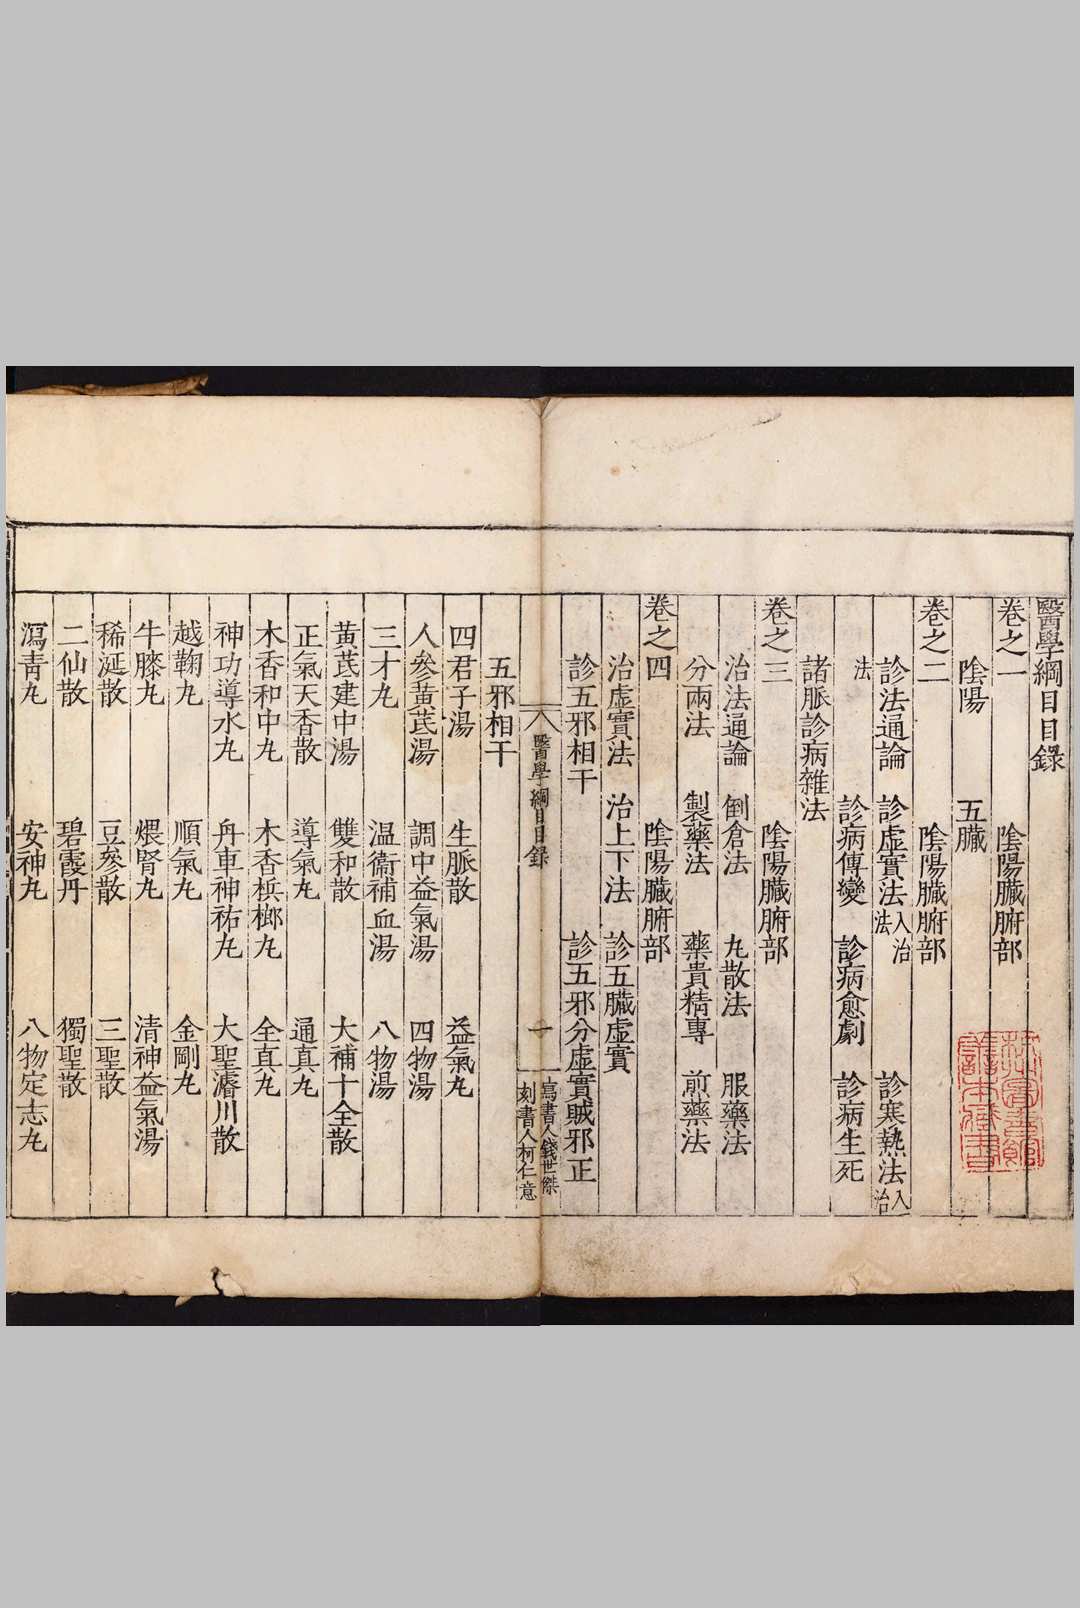 醫學綱目目錄
卷之一 陰陽臟腑部
陰陽 五臟
卷之二 陰陽臟腑部
診法通論 診虛實法入治法 診寒熱法入治
法 診病傳變 診病愈劇 診病生死
諸脈診病雜法
卷之三 陰陽臟腑部
治法通論 倒倉法 丸散法 服藥法
分兩法 製藥法 藥貴精專 煎藥法
卷之四 陰陽臟腑部
治虛實法 治上下法 診五臟虛實
診五邪相干 診五邪分虛實賊邪正
醫學綱目目錄 一 寫書人錢世傑
刻書人柯仁意
五邪相干
四君子湯 生脈散 益氣丸
人參黃茋湯 調中益氣湯 四物湯
三才丸 温衞補血湯 八物湯
黃茋建中湯 雙和散 大補十全散
正氣天香散 導氣丸 通真丸
木香和中丸 木香梹榔丸 全真丸
神功導水丸 舟車神祐丸 大聖濬川散
越鞠丸 順氣丸 金剛丸
牛膝丸 煨腎丸 清神益氣湯
稀涎散 豆參散 三聖散
二仙散 碧霞丹 獨聖散
瀉青丸 安神丸 八物定志丸